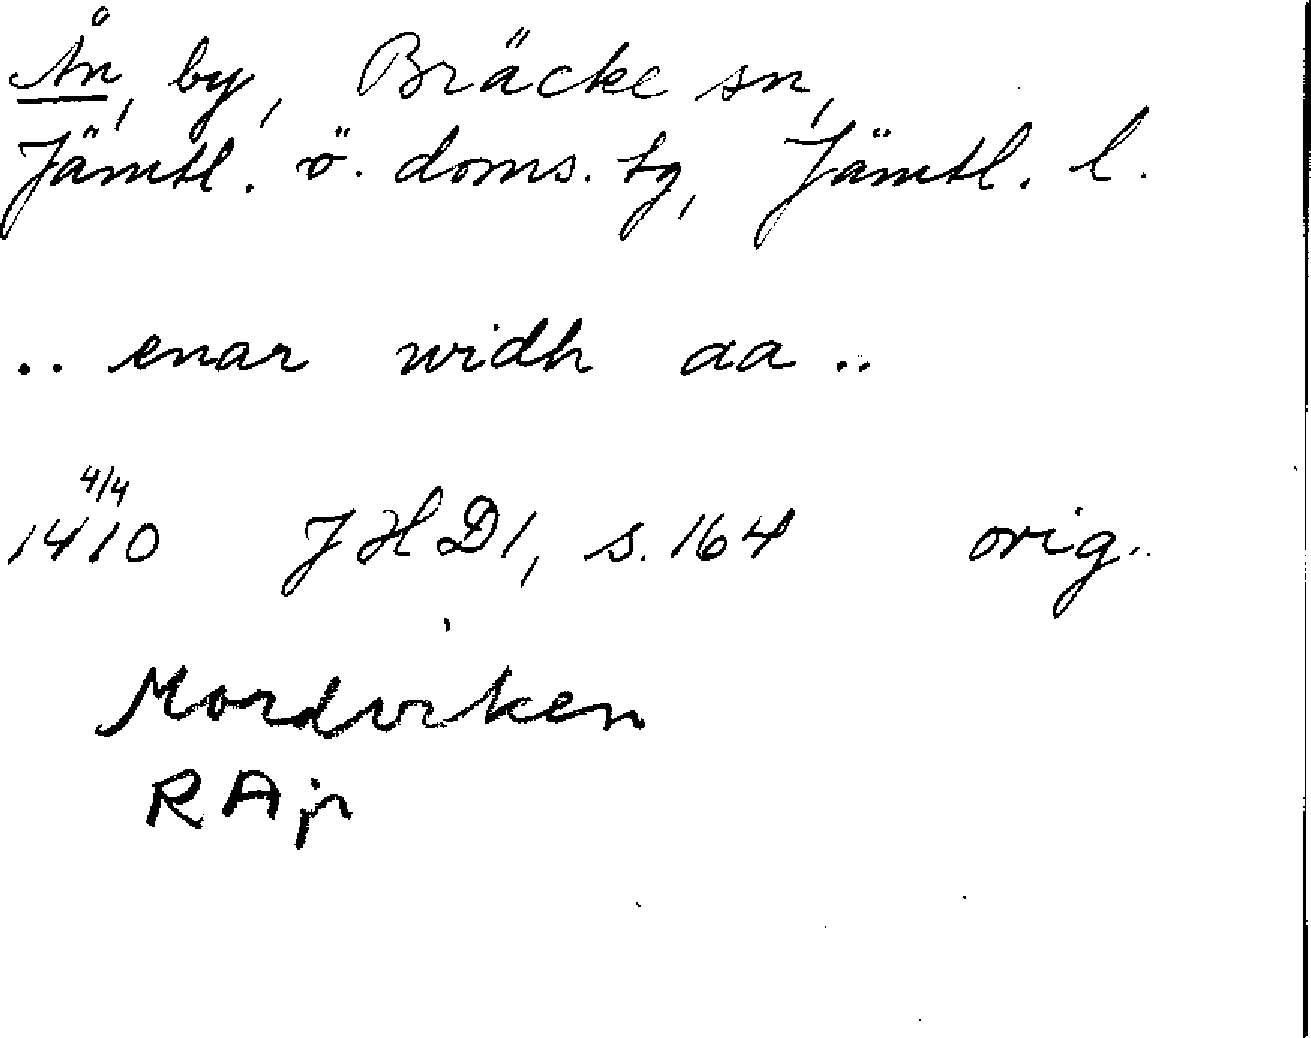 Ån, by, Bräcke sn,
Jämtl. ö. doms. tg, Jämtl. l.
.. enar widh aa ..
4/4
1410 JHD1, s. 164 orig.
Mordviken
RAp